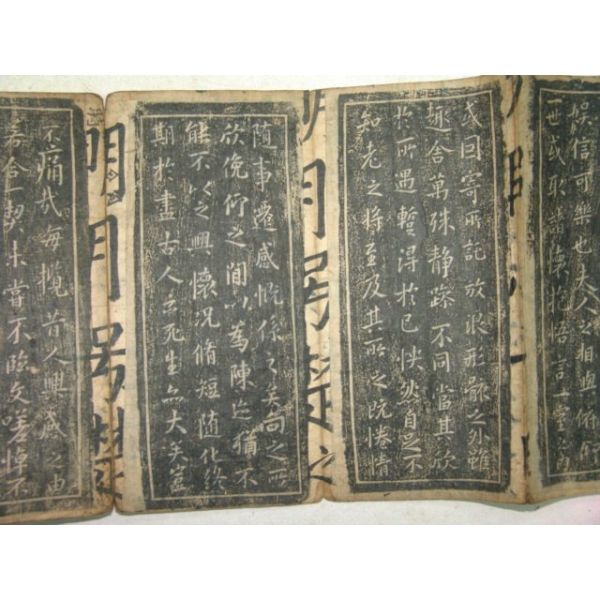 娛信可樂也夫人之相與俯仰
一世或取諸懷抱悟言一室之內
或因寄所託放浪形骸之外雖
趣舍萬殊靜躁不同當其欣
於所遇暫得於己怏然自足不
知老之將至及其所之既惓情
隨事遷感慨係之矣向之所
欣俛仰之閒以為陳迹猶不
能不以之興懷況脩短隨化終
期於盡古人云死生亦大矣豈
明月
不痛哉每攬昔人興感之由
若合一契未嘗不臨文嗟悼不